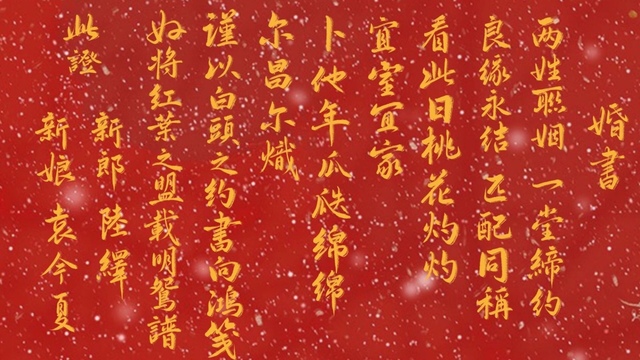 婚書
两姓聮姻 一堂締约
良緣永结 匹配同稱
看此日桃花灼灼
宜室宜家
卜他年瓜瓞绵绵
尔昌尔熾
謹以白頭之约書向鴻笺
好將红葉之盟載明鴛譜
此證
新郎 陸繹
新娘 袁今夏